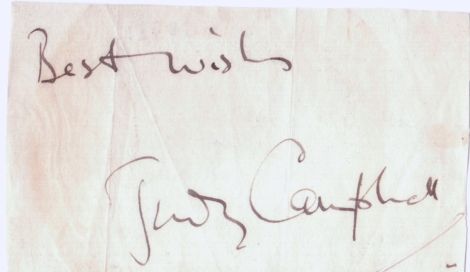 Best wishes
Judy Campbell